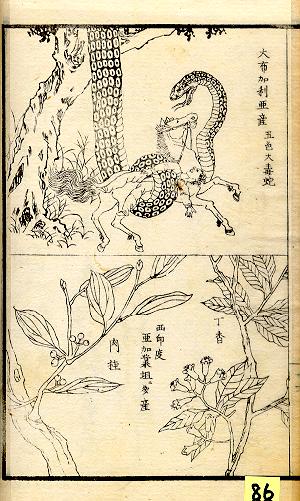 大布加利亜産
五色大毒蛇
丁香
西印度
亜加 産
肉桂
86